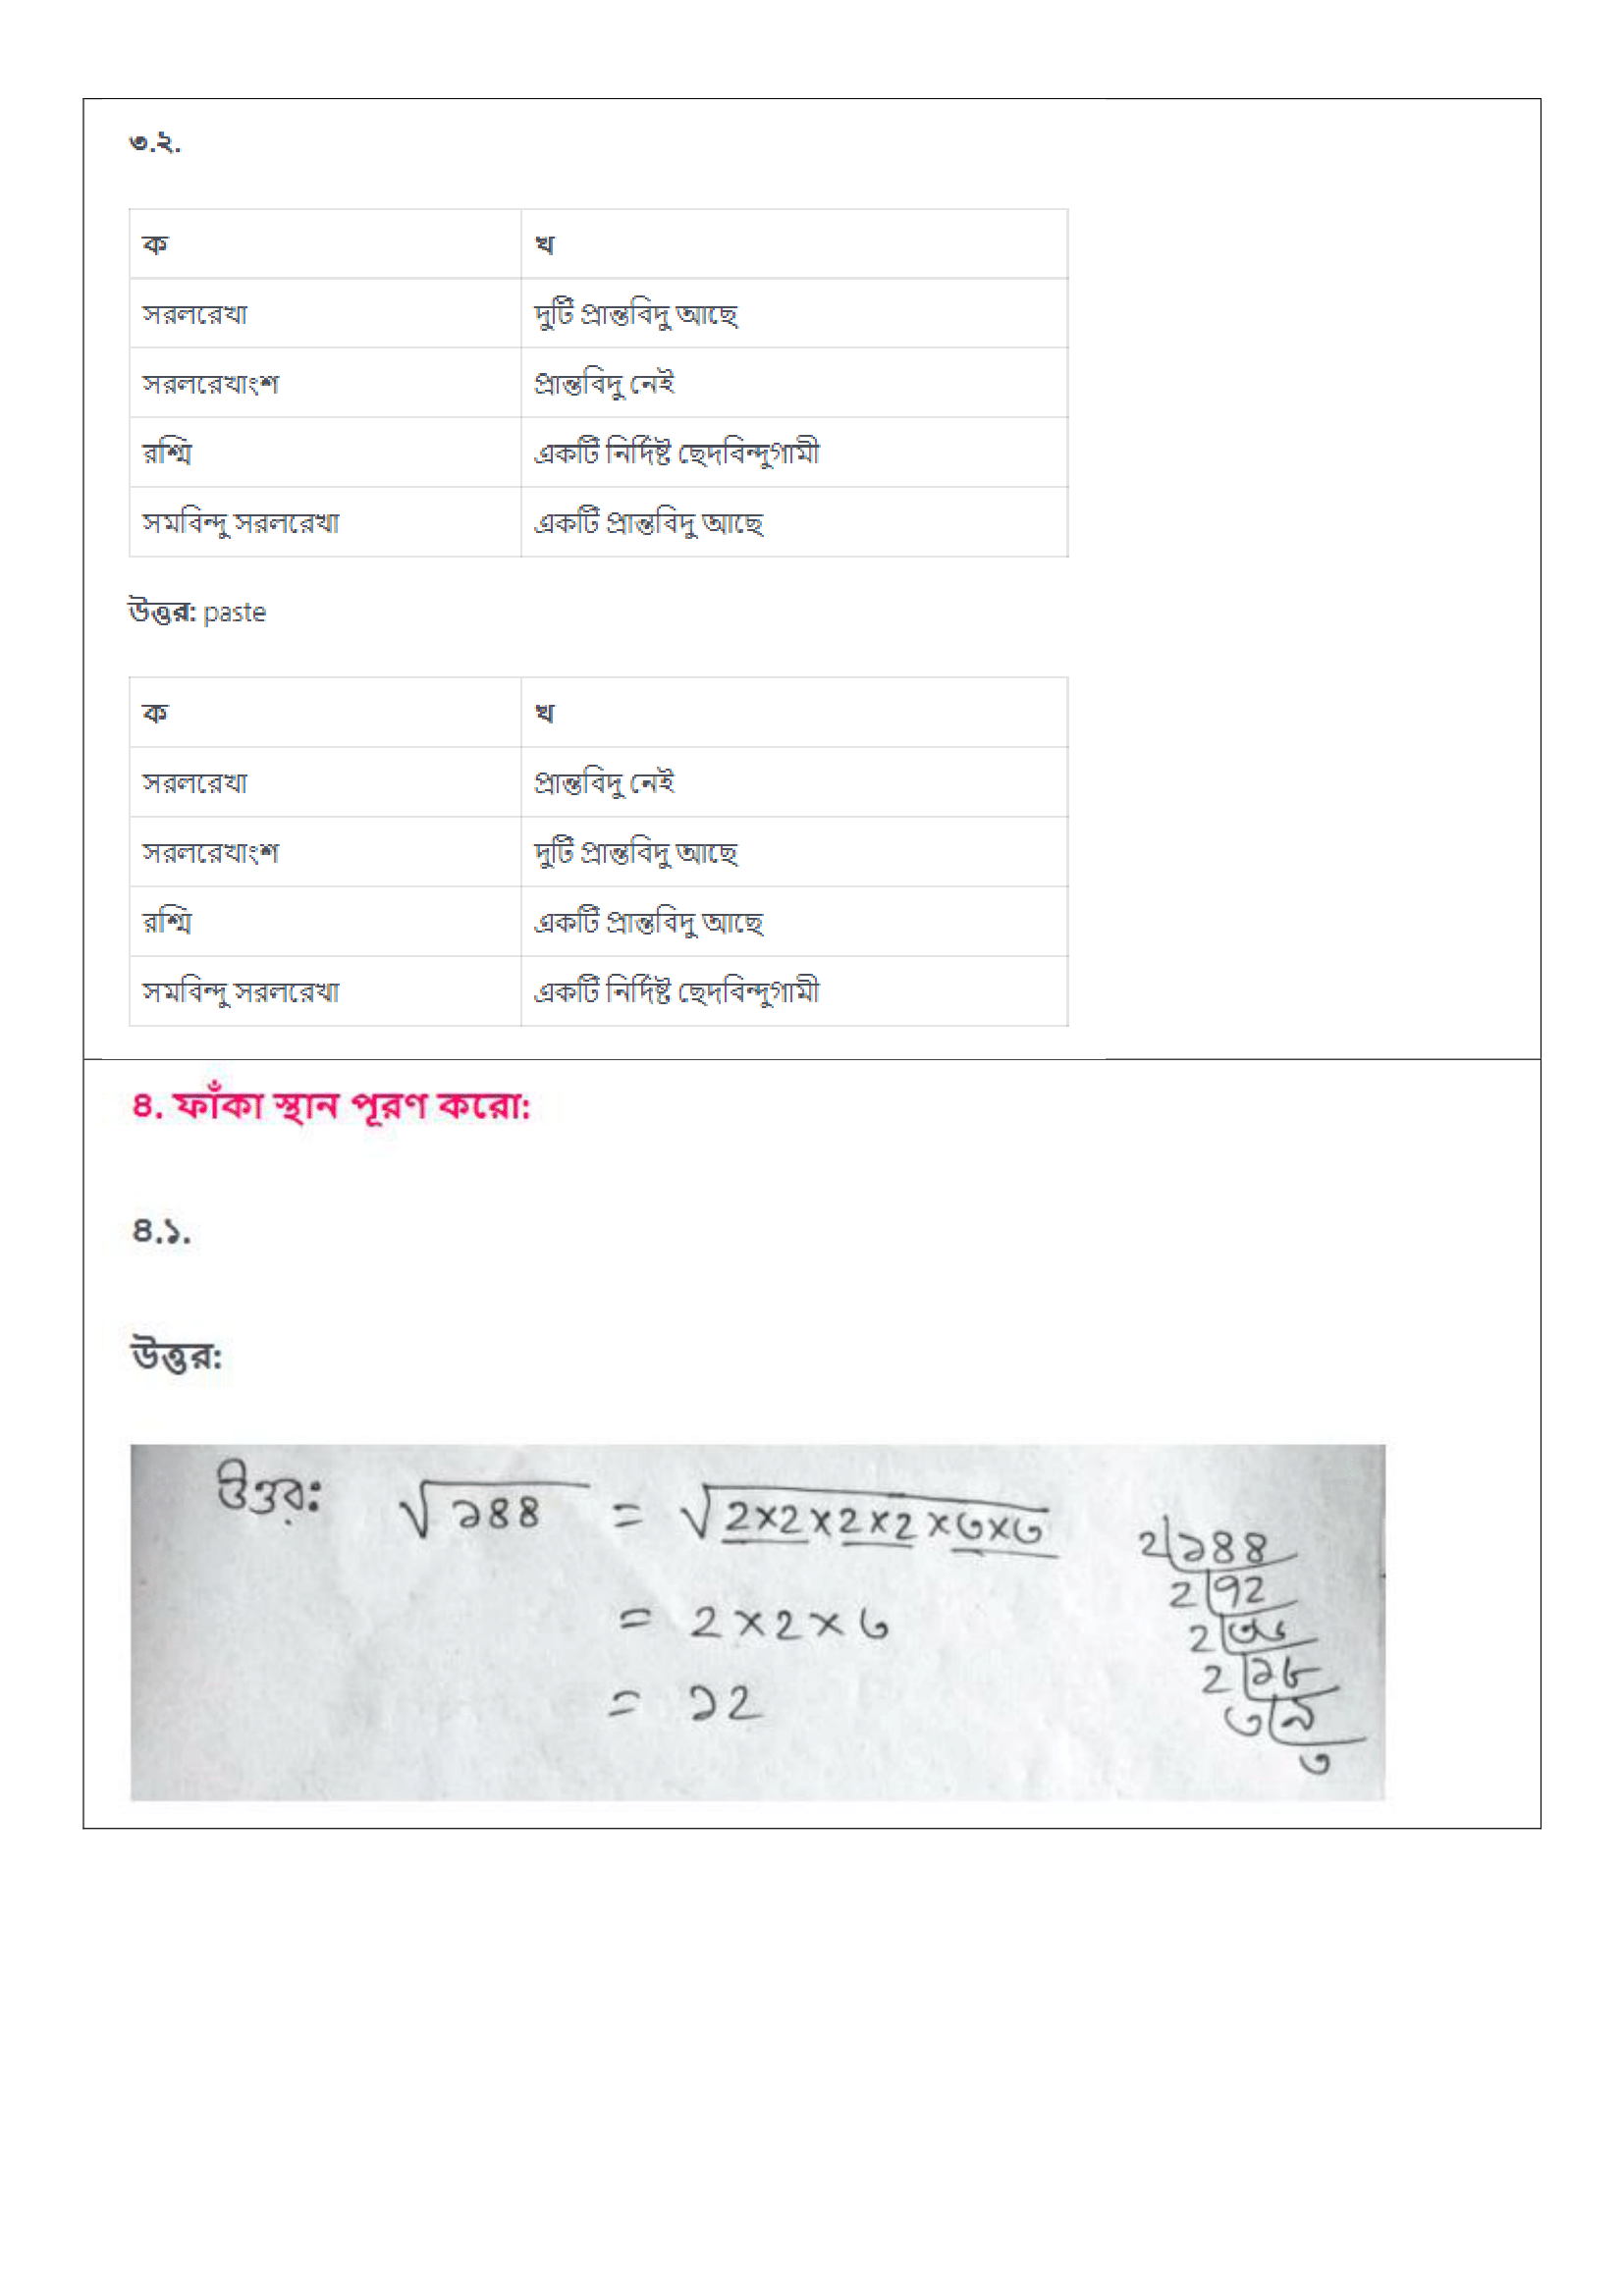 ৩.২.
ক খ
সরলরেখা দুটি প্রান্তবিদু আছে
সরলরেখাংশ প্রান্তবিদু নেই
রশ্মি একটি নির্দিষ্ট ছেদবিন্দুগামী
সমবিন্দু সরলরেখা একটি প্রান্তবিদু আছে
উত্তর: paste
ক খ
সরলরেখা প্রান্তবিদু নেই
সরলরেখাংশ দুটি প্রান্তবিদু আছে
রশ্মি একটি প্রান্তবিদু আছে
সমবিন্দু সরলরেখা একটি নির্দিষ্ট ছেদবিন্দুগামী
৪. ফাঁকা স্থান পূরণ করো:
৪.১.
উত্তর:
উত্তর: √১৪৪ = √২×২×২×২×৩×৩
= ২×২×৩
= ১২
২ ১৪৪
২ ৭২
২ ৩৬
২ ১৮
৩ ৯
৩